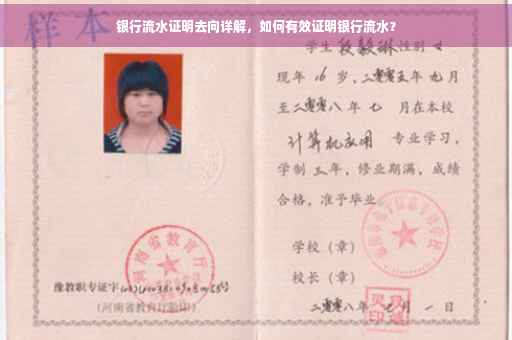 银行流水证明去向详解，如何有效证明银行流水？
样本
学生 段毅琳 性别 女
现年 16 岁，二零零五年 九 月
至二零零八 年 七 月在本校
计算机应用 专业学习，
学制 三 年，修业期满，成绩
合格，准予毕业。
学校（章）
校长（章）
二零零八年 七 月 一 日
河南省教育厅
豫教职专证字
（河南省教育厅验印）